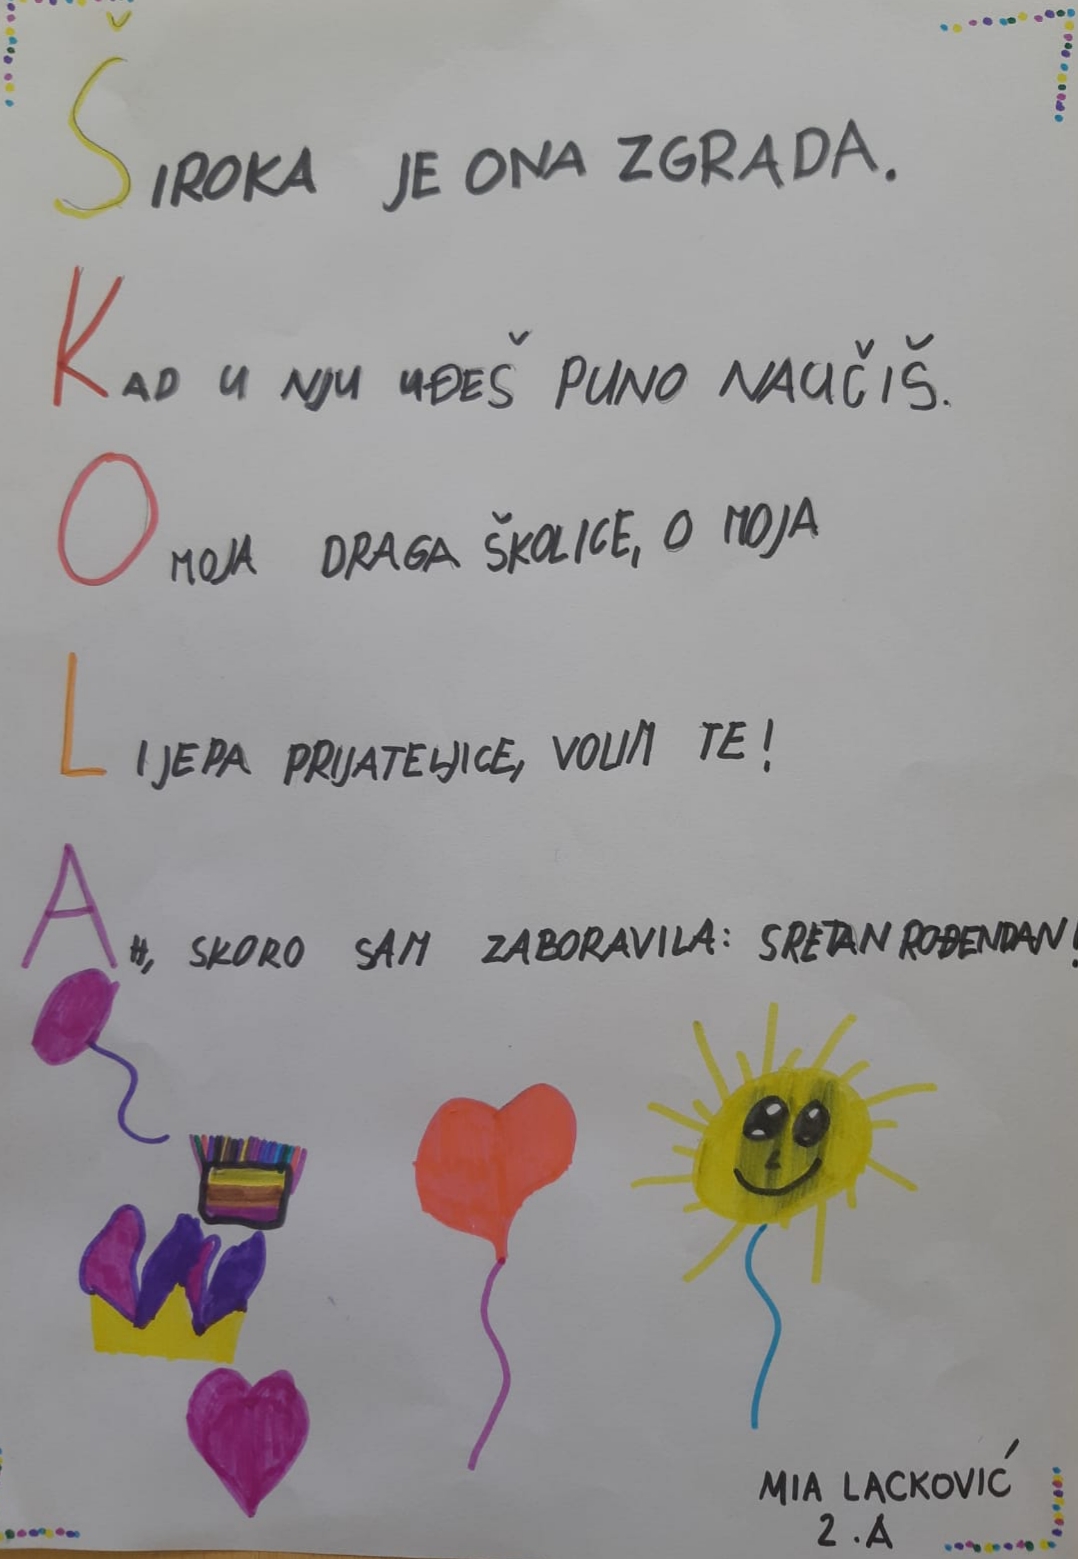 ŠIROKA JE ONA ZGRADA.
KAD U NJU UĐEŠ PUNO NAUČIŠ.
O MOJA DRAGA ŠKOLICE, O MOJA
LIJEPA PRIJATELJICE, VOLIM TE!
AH, SKORO SAM ZABORAVILA: SRETAN ROĐENDAN!
MIA LACKOVIĆ
2.A